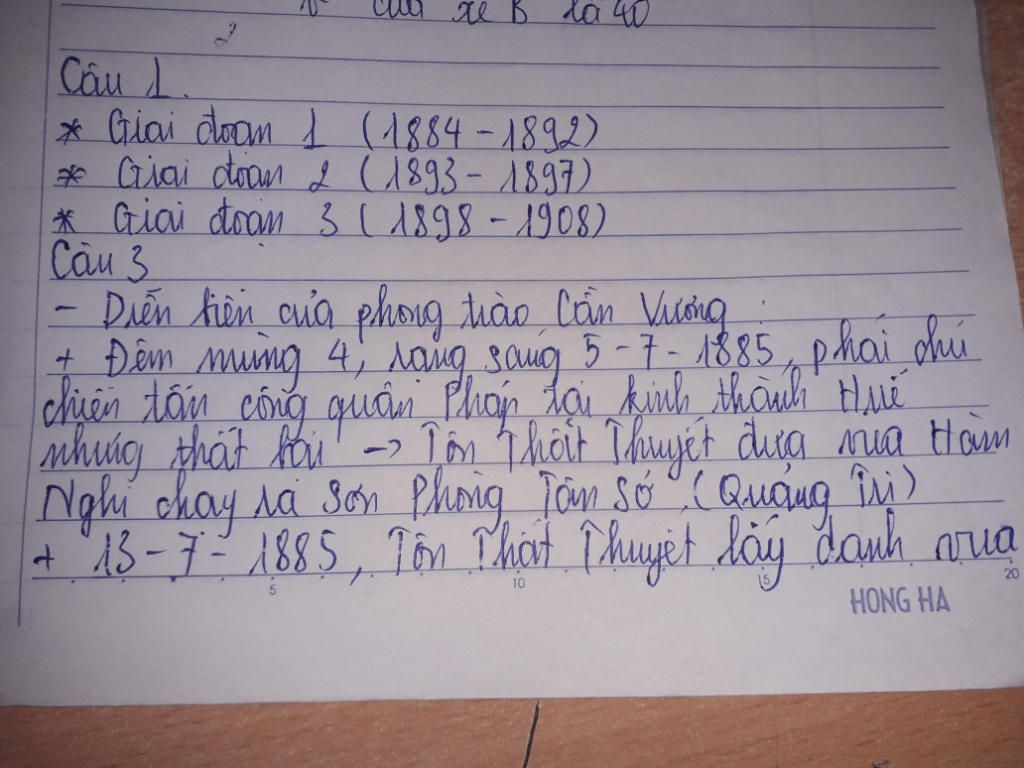 của xe B là 40
2
Câu 1.
* Giai đoạn 1 (1884 - 1892)
* Giai đoạn 2 (1893 - 1897)
* Giai đoạn 3 (1898 - 1908)
Câu 3
- Diễn tiến của phong trào Cần Vương :
+ Đêm mùng 4, rạng sáng 5-7-1885, phái chủ
chiến tấn công quân Pháp tại kinh thành Huế
nhưng thất bại -> Tôn Thất Thuyết đưa vua Hàm
Nghi chạy ra Sơn Phòng Tân Sở (Quảng Trị)
+ 13-7-1885, Tôn Thất Thuyết lấy danh vua
5 10 15 20
HONG HA